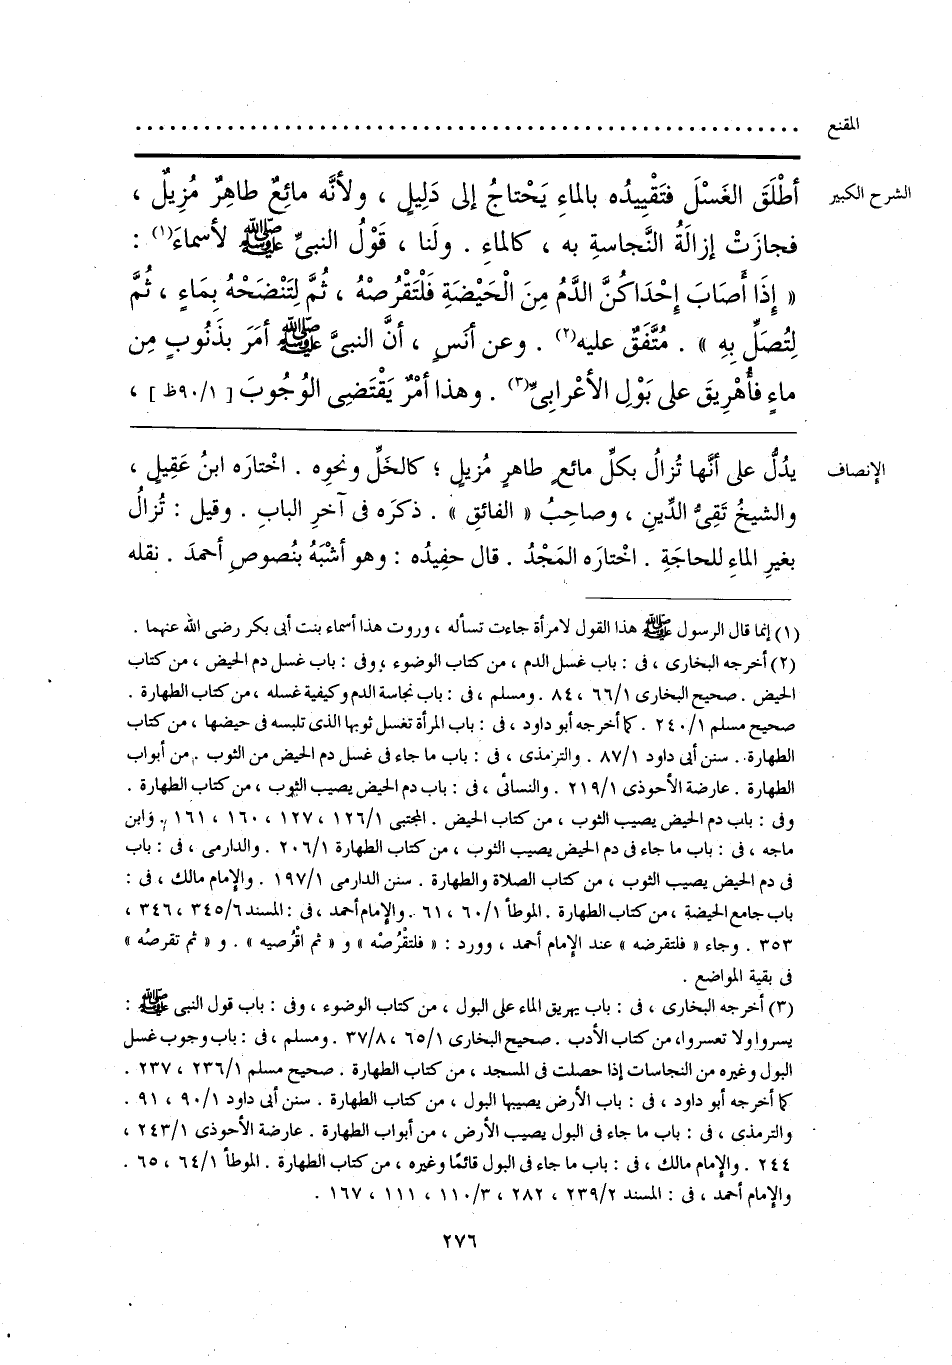 المقنع ........................................................
الشرح الكبير أَطْلَقَ الغَسْلَ فتَقْيِيدُه بالماءِ يَحْتاجُ إلى دَلِيلٍ ، ولأنَّه مائِعٌ طاهِرٌ مُزِيلٌ ،
فجازَتْ إزالَةُ النَّجاسةِ به ، كالماءِ . ولَنا ، قَوْلُ النبىِّ ﷺ لأسماءَ(١) :
« إِذَا أَصَابَ إِحْدَاكُنَّ الدَّمُ مِنَ الْحَيْضَةِ فَلْتَقْرُصْهُ ، ثُمَّ لِتَنْضَحْهُ بِمَاءٍ ، ثُمَّ
لِتُصَلِّ بِهِ » . مُتَّفَقٌ عليه(٢) . وعن أنَسٍ ، أنَّ النبىَّ ﷺ أمَرَ بذَنُوبٍ مِن
ماءٍ فأُهْرِيقَ على بَوْلِ الأعْرابِىِّ(٣) . وهذا أمْرٌ يَقْتَضِى الوُجُوبَ [ ٩٠/١ظ ] ،
الإنصاف يدُلُّ على أنَّها تُزالُ بكلِّ مائعٍ طاهرٍ مُزيلٍ ؛ كالخَلِّ ونحوِه . اخْتارَه ابنُ عَقِيلٍ ،
والشيخُ تَقِىُّ الدِّينِ ، وصاحِبُ « الفائقِ » . ذكَرَه فى آخرِ البابِ . وقيل : تُزالُ
بغيرِ الماءِ للحاجَةِ . اخْتارَه المَجْدُ . قال حفِيدُه : وهو أشْبَهُ بنُصوصِ أحمدَ . نقلَه
(١) إنما قال الرسول ﷺ هذا القول لامرأة جاءت تسأله ، وروت هذا أسماء بنت أبى بكر رضى الله عنهما .
(٢) أخرجه البخارى ، فى : باب غسل الدم ، من كتاب الوضوء ، وفى : باب غسل دم الحيض ، من كتاب
الحيض . صحيح البخارى ٦٦/١ ، ٨٤ . ومسلم ، فى : باب نجاسة الدم وكيفية غسله ، من كتاب الطهارة .
صحيح مسلم ٢٤٠/١ . كما أخرجه أبو داود ، فى : باب المرأة تغسل ثوبها الذى تلبسه فى حيضها ، من كتاب
الطهارة . سنن أبى داود ٨٧/١ . والترمذى ، فى : باب ما جاء فى غسل دم الحيض من الثوب . من أبواب
الطهارة . عارضة الأحوذى ٢١٩/١ . والنسائى ، فى : باب دم الحيض يصيب الثوب ، من كتاب الطهارة .
وفى : باب دم الحيض يصيب الثوب ، من كتاب الحيض . المجتبى ١٢٦/١ ، ١٢٧ ، ١٦٠ ، ١٦١ . وابن
ماجه ، فى : باب ما جاء فى دم الحيض يصيب الثوب ، من كتاب الطهارة ٢٠٦/١ . والدارمى ، فى : باب
فى دم الحيض يصيب الثوب ، من كتاب الصلاة والطهارة . سنن الدارمى ١٩٧/١ . والإمام مالك ، فى :
باب جامع الحيضة ، من كتاب الطهارة . الموطأ ٦٠/١ ، ٦١ . والإمام أحمد ، فى : المسند ٣٤٥/٦ ، ٣٤٦ ،
٣٥٣ . وجاء « فلتقرضه » عند الإمام أحمد ، وورد : « فلتقْرُصْه » و « ثم اقْرُصيه » . و « ثم تقرصُه »
فى بقية المواضع .
(٣) أخرجه البخارى ، فى : باب يهريق الماء على البول ، من كتاب الوضوء ، وفى : باب قول النبى ﷺ :
يسروا ولا تعسروا، من كتاب الأدب . صحيح البخارى ٦٥/١ ، ٣٧/٨ . ومسلم ، فى : باب وجوب غسل
البول وغيره من النجاسات إذا حصلت فى المسجد ، من كتاب الطهارة . صحيح مسلم ٢٣٦/١ ، ٢٣٧ .
كما أخرجه أبو داود ، فى : باب الأرض يصيبها البول ، من كتاب الطهارة . سنن أبى داود ٩٠/١ ، ٩١ .
والترمذى ، فى : باب ما جاء فى البول يصيب الأرض ، من أبواب الطهارة . عارضة الأحوذى ٢٤٣/١ ،
٢٤٤ . والإمام مالك ، فى : باب ما جاء فى البول قائمًا وغيره ، من كتاب الطهارة . الموطأ ٦٤/١ ، ٦٥ .
والإمام أحمد ، فى : المسند ٢٣٩/٢ ، ٢٨٢ ، ١١٠/٣ ، ١١١ ، ١٦٧ .
٢٧٦